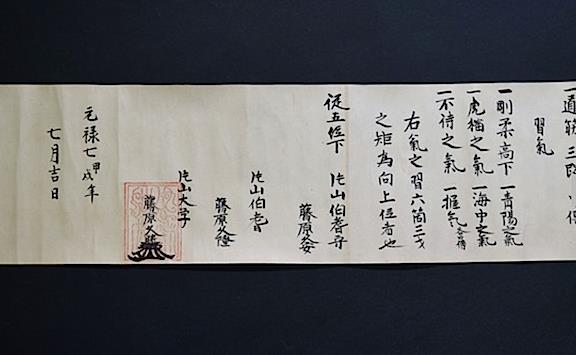 一道筋
習氣
一剛柔高下 一青陽之氣
之氣 一海中之氣
一不待之氣 一握氣
右氣之習六箇三
之矩為向上位者也
從五位下 片山伯耆守
藤原久安
片山伯耆
藤原久隆
片山大学
藤原久
元禄七甲戌年
七月吉日